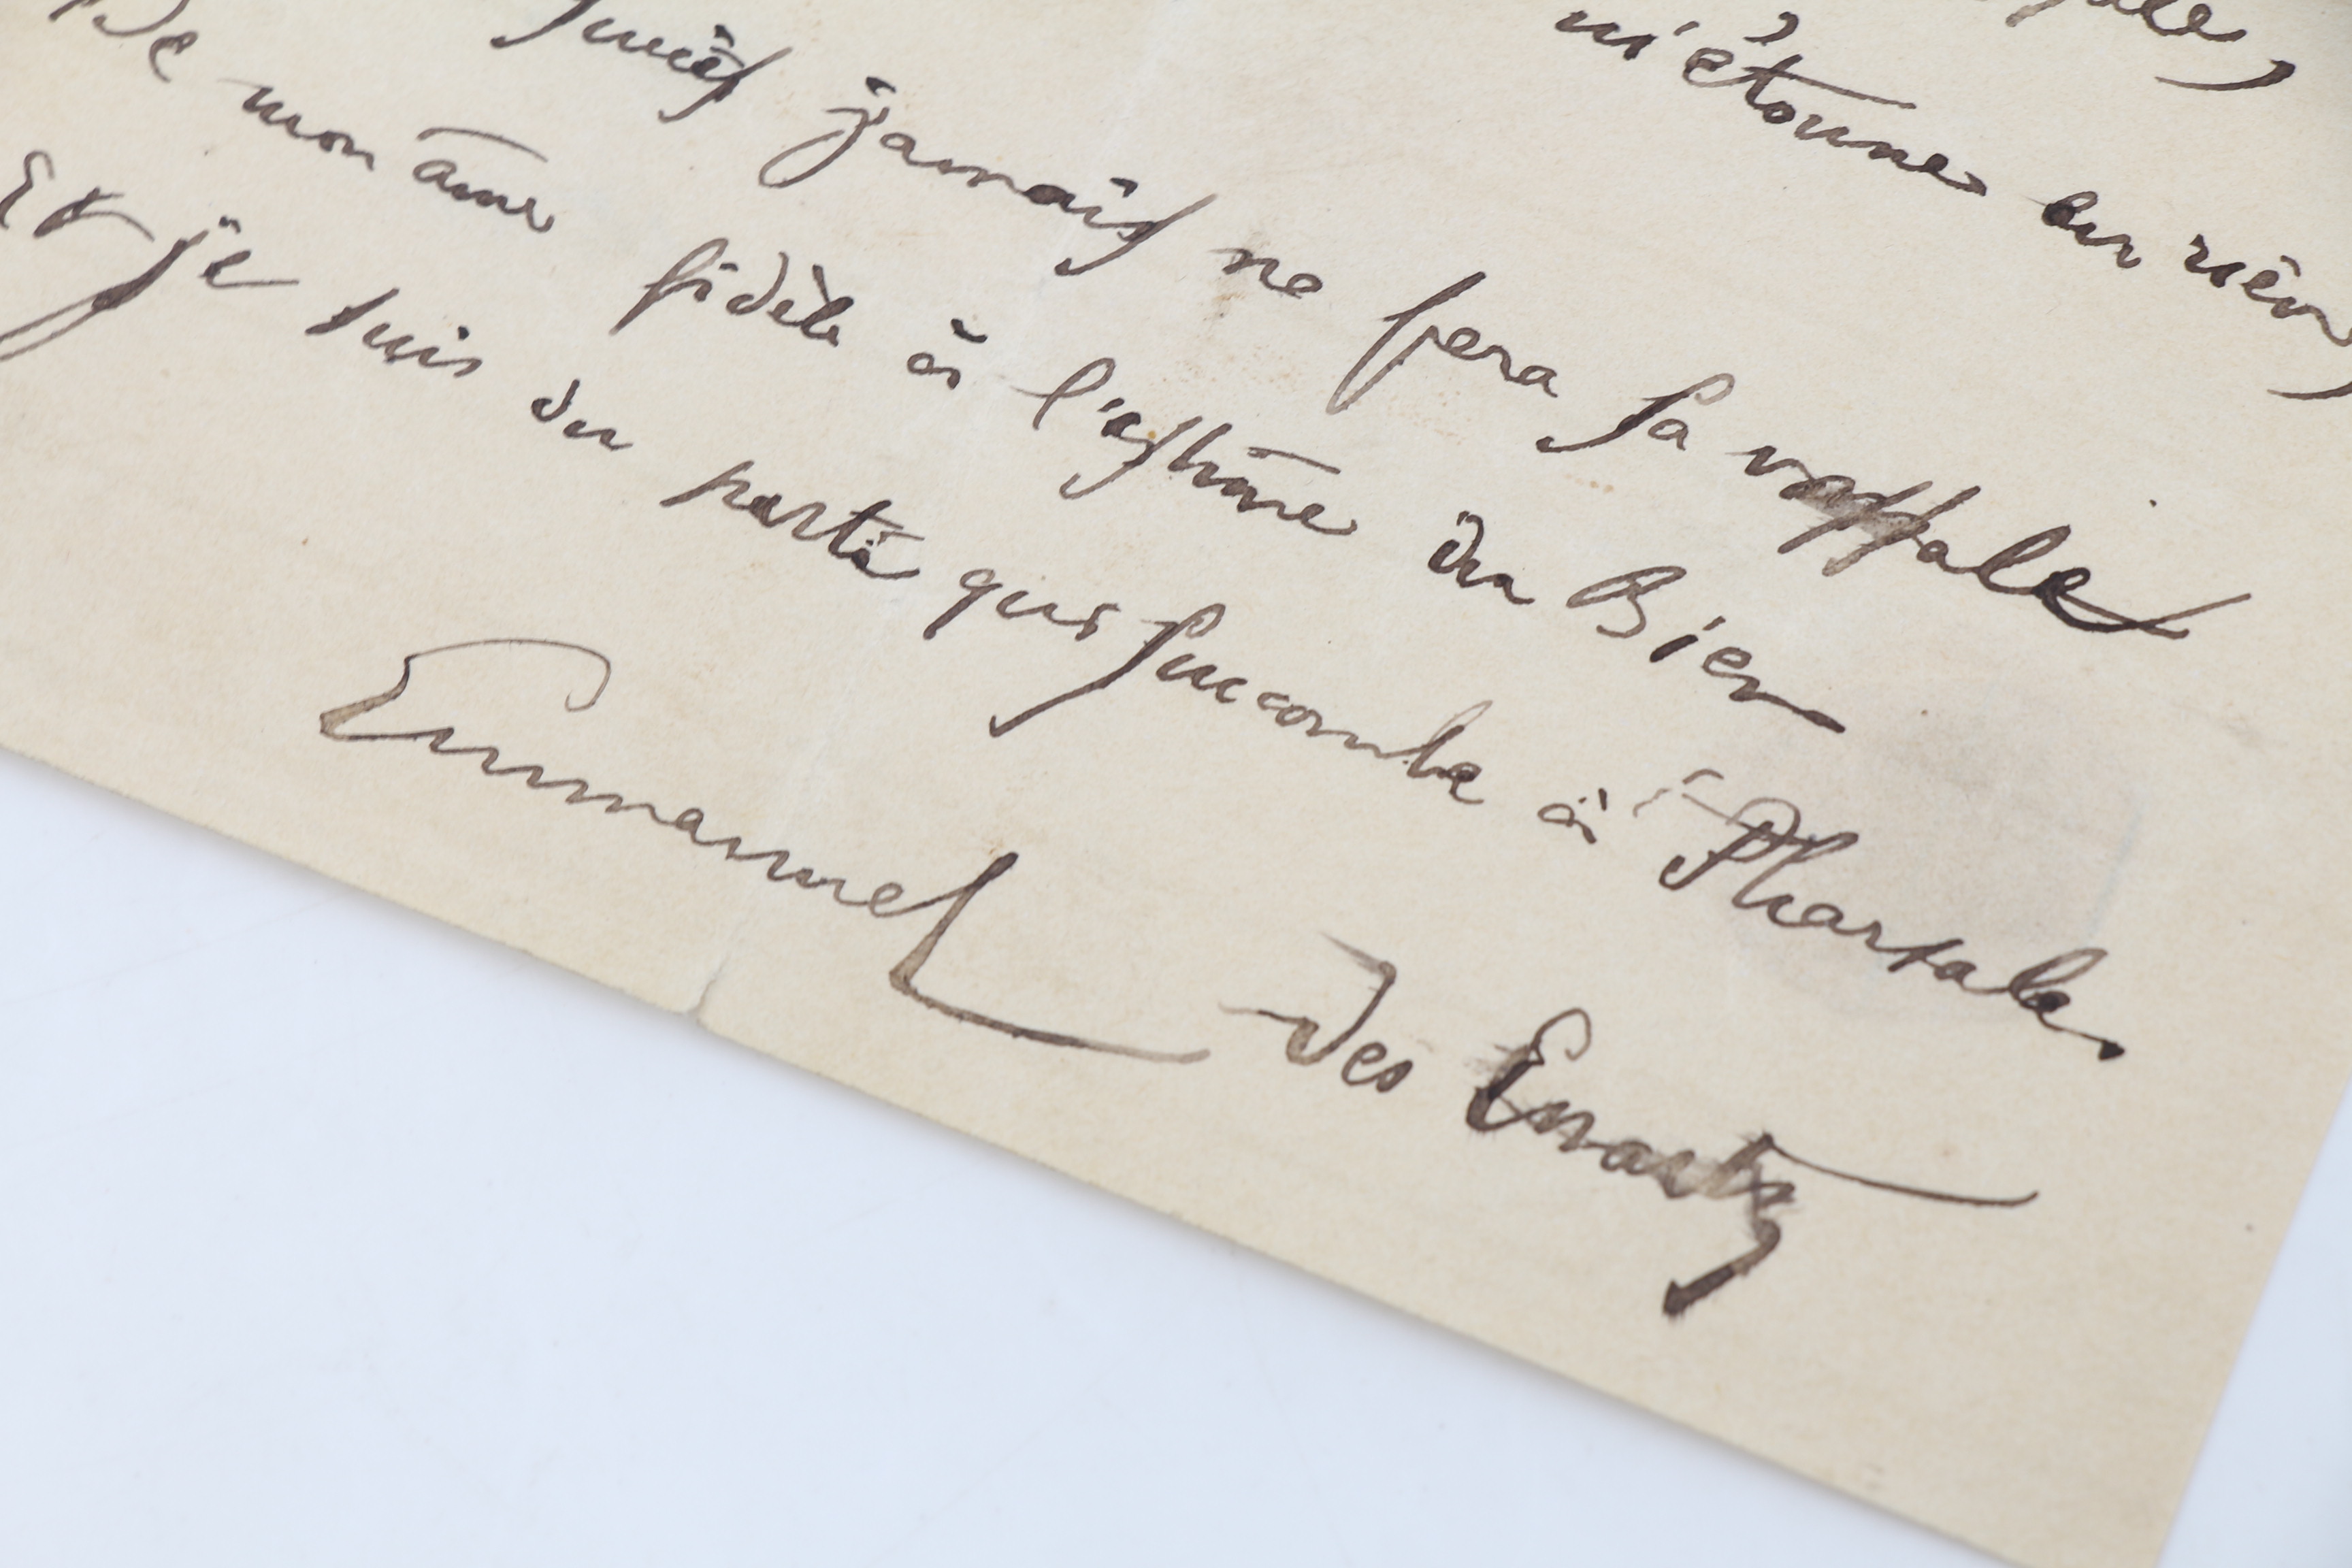 m'étonne en rien,
succès jamais ne fera sa vassale
De mon âme fidèle à l'estime du Bien
Et je suis du parti qui succombe à Pharsale.
Emmanuel des Essarts